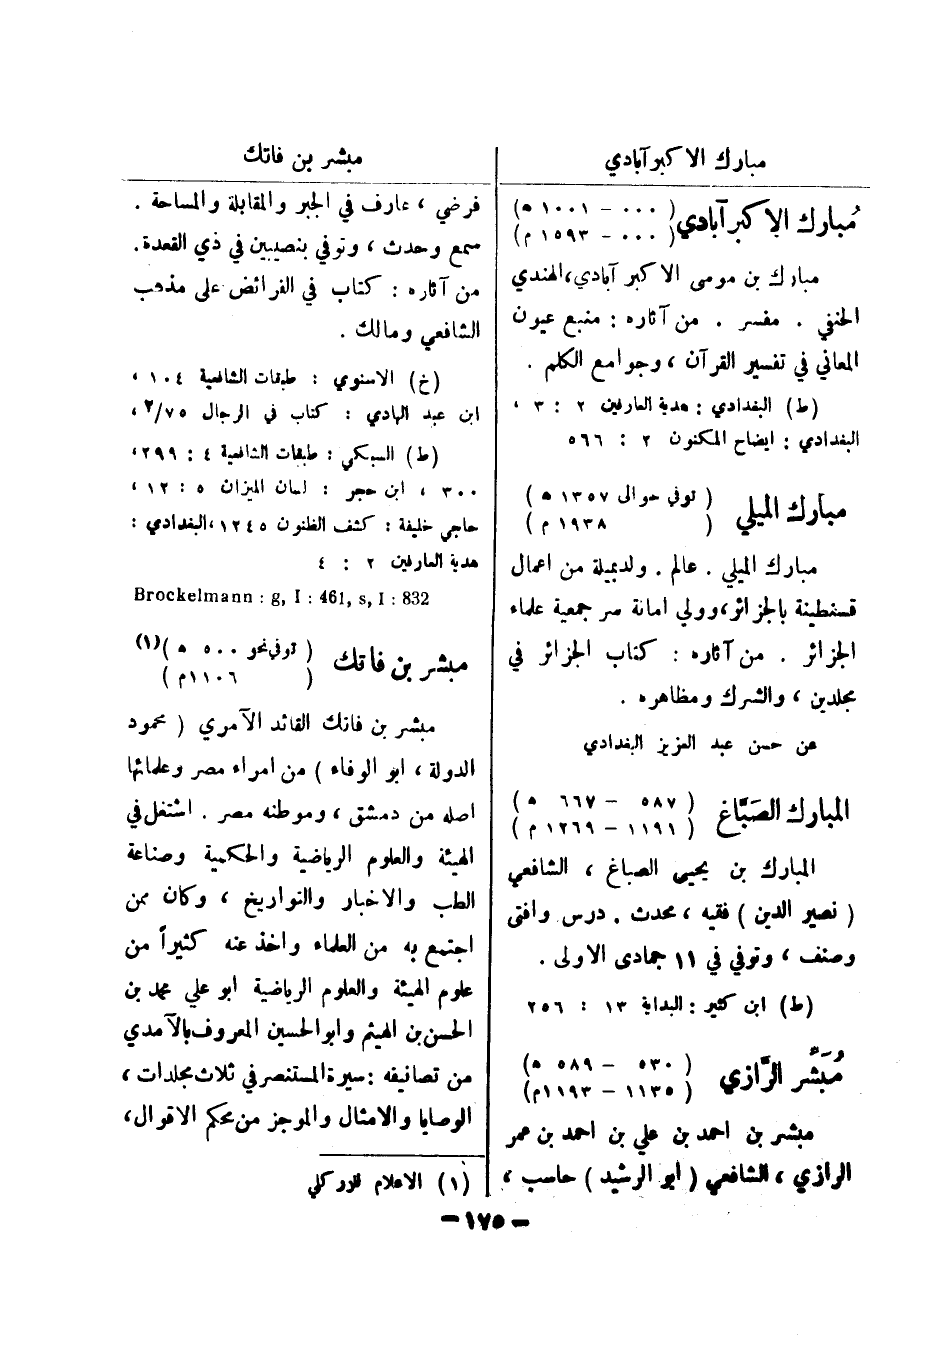 مبارك الاكبرآبادي
مُبارك الاكبرآبادي (٠٠٠ – ١٠٠١ ه)
(٠٠٠ – ١٥٩٣ م)
مبارك بن موسى الاكبر آبادي، الهندي
الحنفي . مفسر . من آثاره : منبع عيون
المعاني في تفسير القرآن ، وجوامع الكلم .
(ط) البغدادي : هدية العارفين ٢ : ٣ ،
البغدادي : ايضاح المكنون ٢ : ٥٦٦
مبارك الميلي ( توفي حوالى ١٣٥٧ ه )
( ١٩٣٨ م )
مبارك الميلي . عالم . ولد بميلة من اعمال
قسنطينة بالجزائر، وولي امانة سر جمعية علماء
الجزائر . من آثاره : كتاب الجزائر في
مجلدين ، والشرك ومظاهره .
عن حسن عبد العزيز البغدادي
المبارك الصَبَّاغ ( ٥٨٧ – ٦٦٧ ه )
( ١١٩١ – ١٢٦٩ م )
المبارك بن يحيى الصباغ ، الشافعي
( نصير الدين ) فقيه ، محدث . درس وافتى
وصنف ، وتوفي في ١١ جمادى الاولى .
(ط) ابن كثير : البداية ١٣ : ٢٥٦
مُبَشّر الرَّازي ( ٥٣٠ – ٥٨٩ ه )
( ١١٣٥ – ١١٩٣م)
مبشر بن احمد بن علي بن احمد بن عمر
الرازي ، الشافعي ( ابو الرشيد ) حاسب ،
مبشر بن فاتك
فرضي ، عارف في الجبر والمقابلة والمساحة .
سمع وحدث ، وتوفي بنصيبين في ذي القعدة.
من آثاره : كتاب في الفرائض على مذهب
الشافعي ومالك .
(خ) الاسنوي : طبقات الشافعية ١٠٤ ،
ابن عبد الهادي : كتاب في الرجال ٢/٧٥،
(ط) السبكي : طبقات الشافعية ٤ : ٢٩٩،
٣٠٠ ، ابن حجر : لسان الميزان ٥ : ١٢ ،
حاجي خليفة : كشف الظنون ١٢٤٥ ،البغدادي :
هدية العارفين ٢ : ٤
Brockelmann : g, I : 461, s, I : 832
مبشر بن فاتك ( توفي نحو ٥٠٠ ه )(١)
( ١١٠٦م )
مبشر بن فاتك القائد الآمري ( محمود
الدولة ، ابو الوفاء ) من امراء مصر وعلمائها
اصله من دمشق ، وموطنه مصر . اشتغل في
الهيئة والعلوم الرياضية والحكمية وصناعة
الطب والاخبار والتواريخ ، وكان ممن
اجتمع به من العلماء واخذ عنه كثيراً من
علوم الهيئة والعلوم الرياضية ابو علي محمد بن
الحسن بن الهيثم وابو الحسين المعروف بالآمدي
من تصانيفه : سيرة المستنصر في ثلاث مجلدات ،
الوصايا والامثال والموجز من محكم الاقوال،
(١) الاعلام للزركلي
– ١٧٥ –